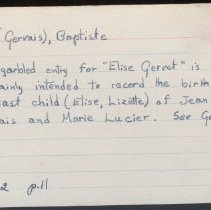 (Gervais), Baptiste
garbled entry for "Elise Gervet" is
ainly intended to record the birth
ast child (Elise, Lizette) of Jean
ais and Marie Lucier. See Ge
2 p. 11